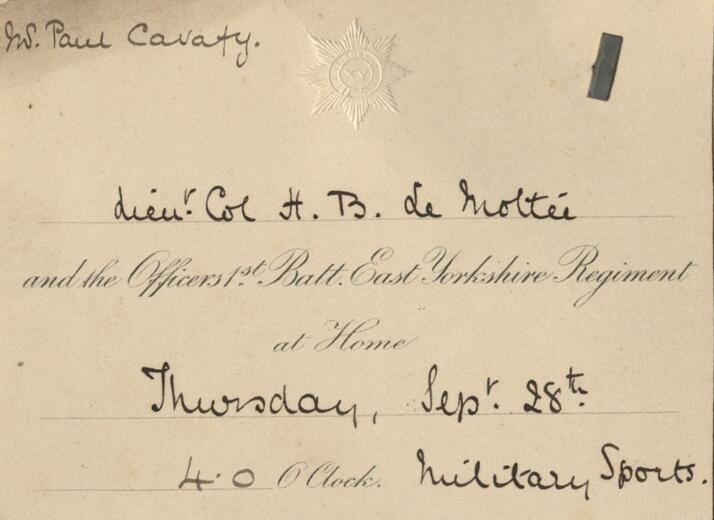 Mr. Paul Cavafy.
XV
Lieut. Col H. B. Le Mottée
and the Officers 1st. Batt. East Yorkshire Regiment
at Home
Thursday, Sept. 28th.
4.0 O'Clock. Military Sports.